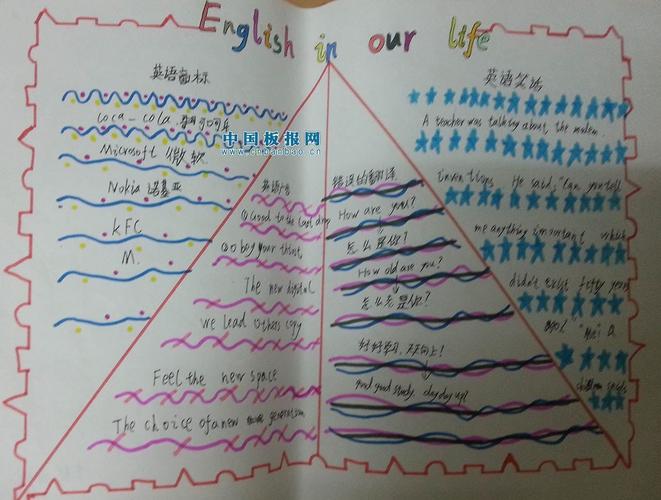 English in our life
英语商标
coca-cola 可口可乐
Microsoft 微软
Nokia 诺基亚
KFC
M.
中国板报网
www.cnbanbao.cn
英语广告
Good to the last drop
Obey your thirst
The new digital
We lead Others copy
Feel the new space
The choice of a new generation
错误的翻译
How are you?
怎么是你?
How old are you?
怎么老是你?
好好学习,天天向上!
good good study, day day up!
英语笑话
A teacher was talking about the modern
inventions. He said, "Can you tell
me anything important which
didn't exist fifty years
ago?" "Me!" a